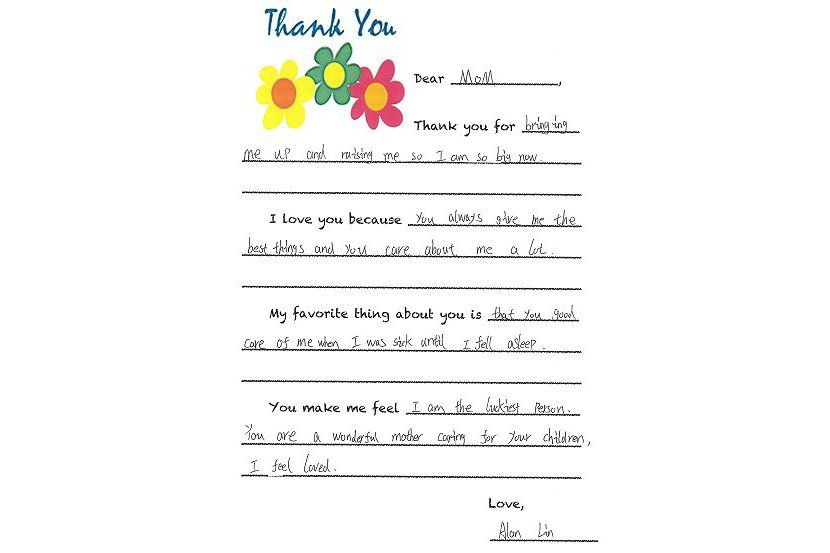 Thank You
Dear MoM,
Thank you for bringing
me up and raising me so I am so big now.
I love you because You always give me the
best things and You care about me a lot.
My favorite thing about you is that you good
care of me when I was sick until I fell asleep.
You make me feel I am the luckiest person.
You are a wonderful mother caring for your children,
I feel loved.
Love,
Alan Lin